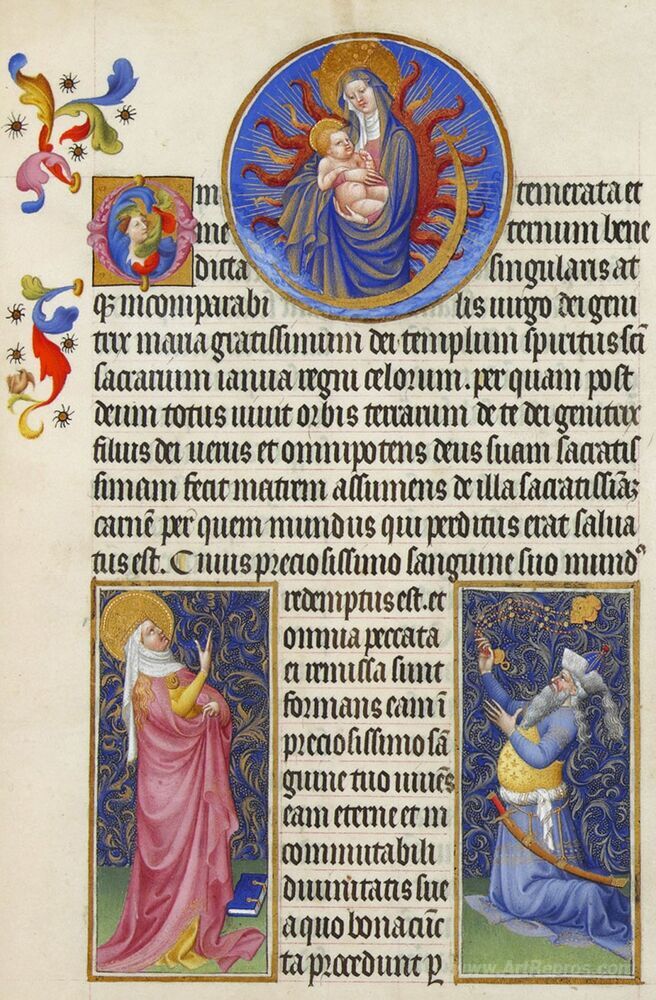 O in temerata et
in e ternum bene
dicta singularis at
qꝫ incomparabi lis uirgo dei geni
trix maria gratissimum dei templum spiritus sc̄i
sacrarium ianua regni celorum. per quam post
deum totus uiuit orbis terrarum de te dei genitrix
filius dei uerus et omnipotens deus suam sacratis
simam fecit matrem assumens de illa sacratissiāꝫ
carnē per quem mundus qui perditus erat salua
tus est. Cuius preciosissimo sanguine suo mundꝰ
redemptus est. et
omnia peccata
ei remissa sunt
formans eam ī
preciosissimo sā
guine tuo uniens
eam eterne et in
commutabili
diuinitatis sue
a quo bona cūc
ta procedunt p̱
www.ArtRepros.com